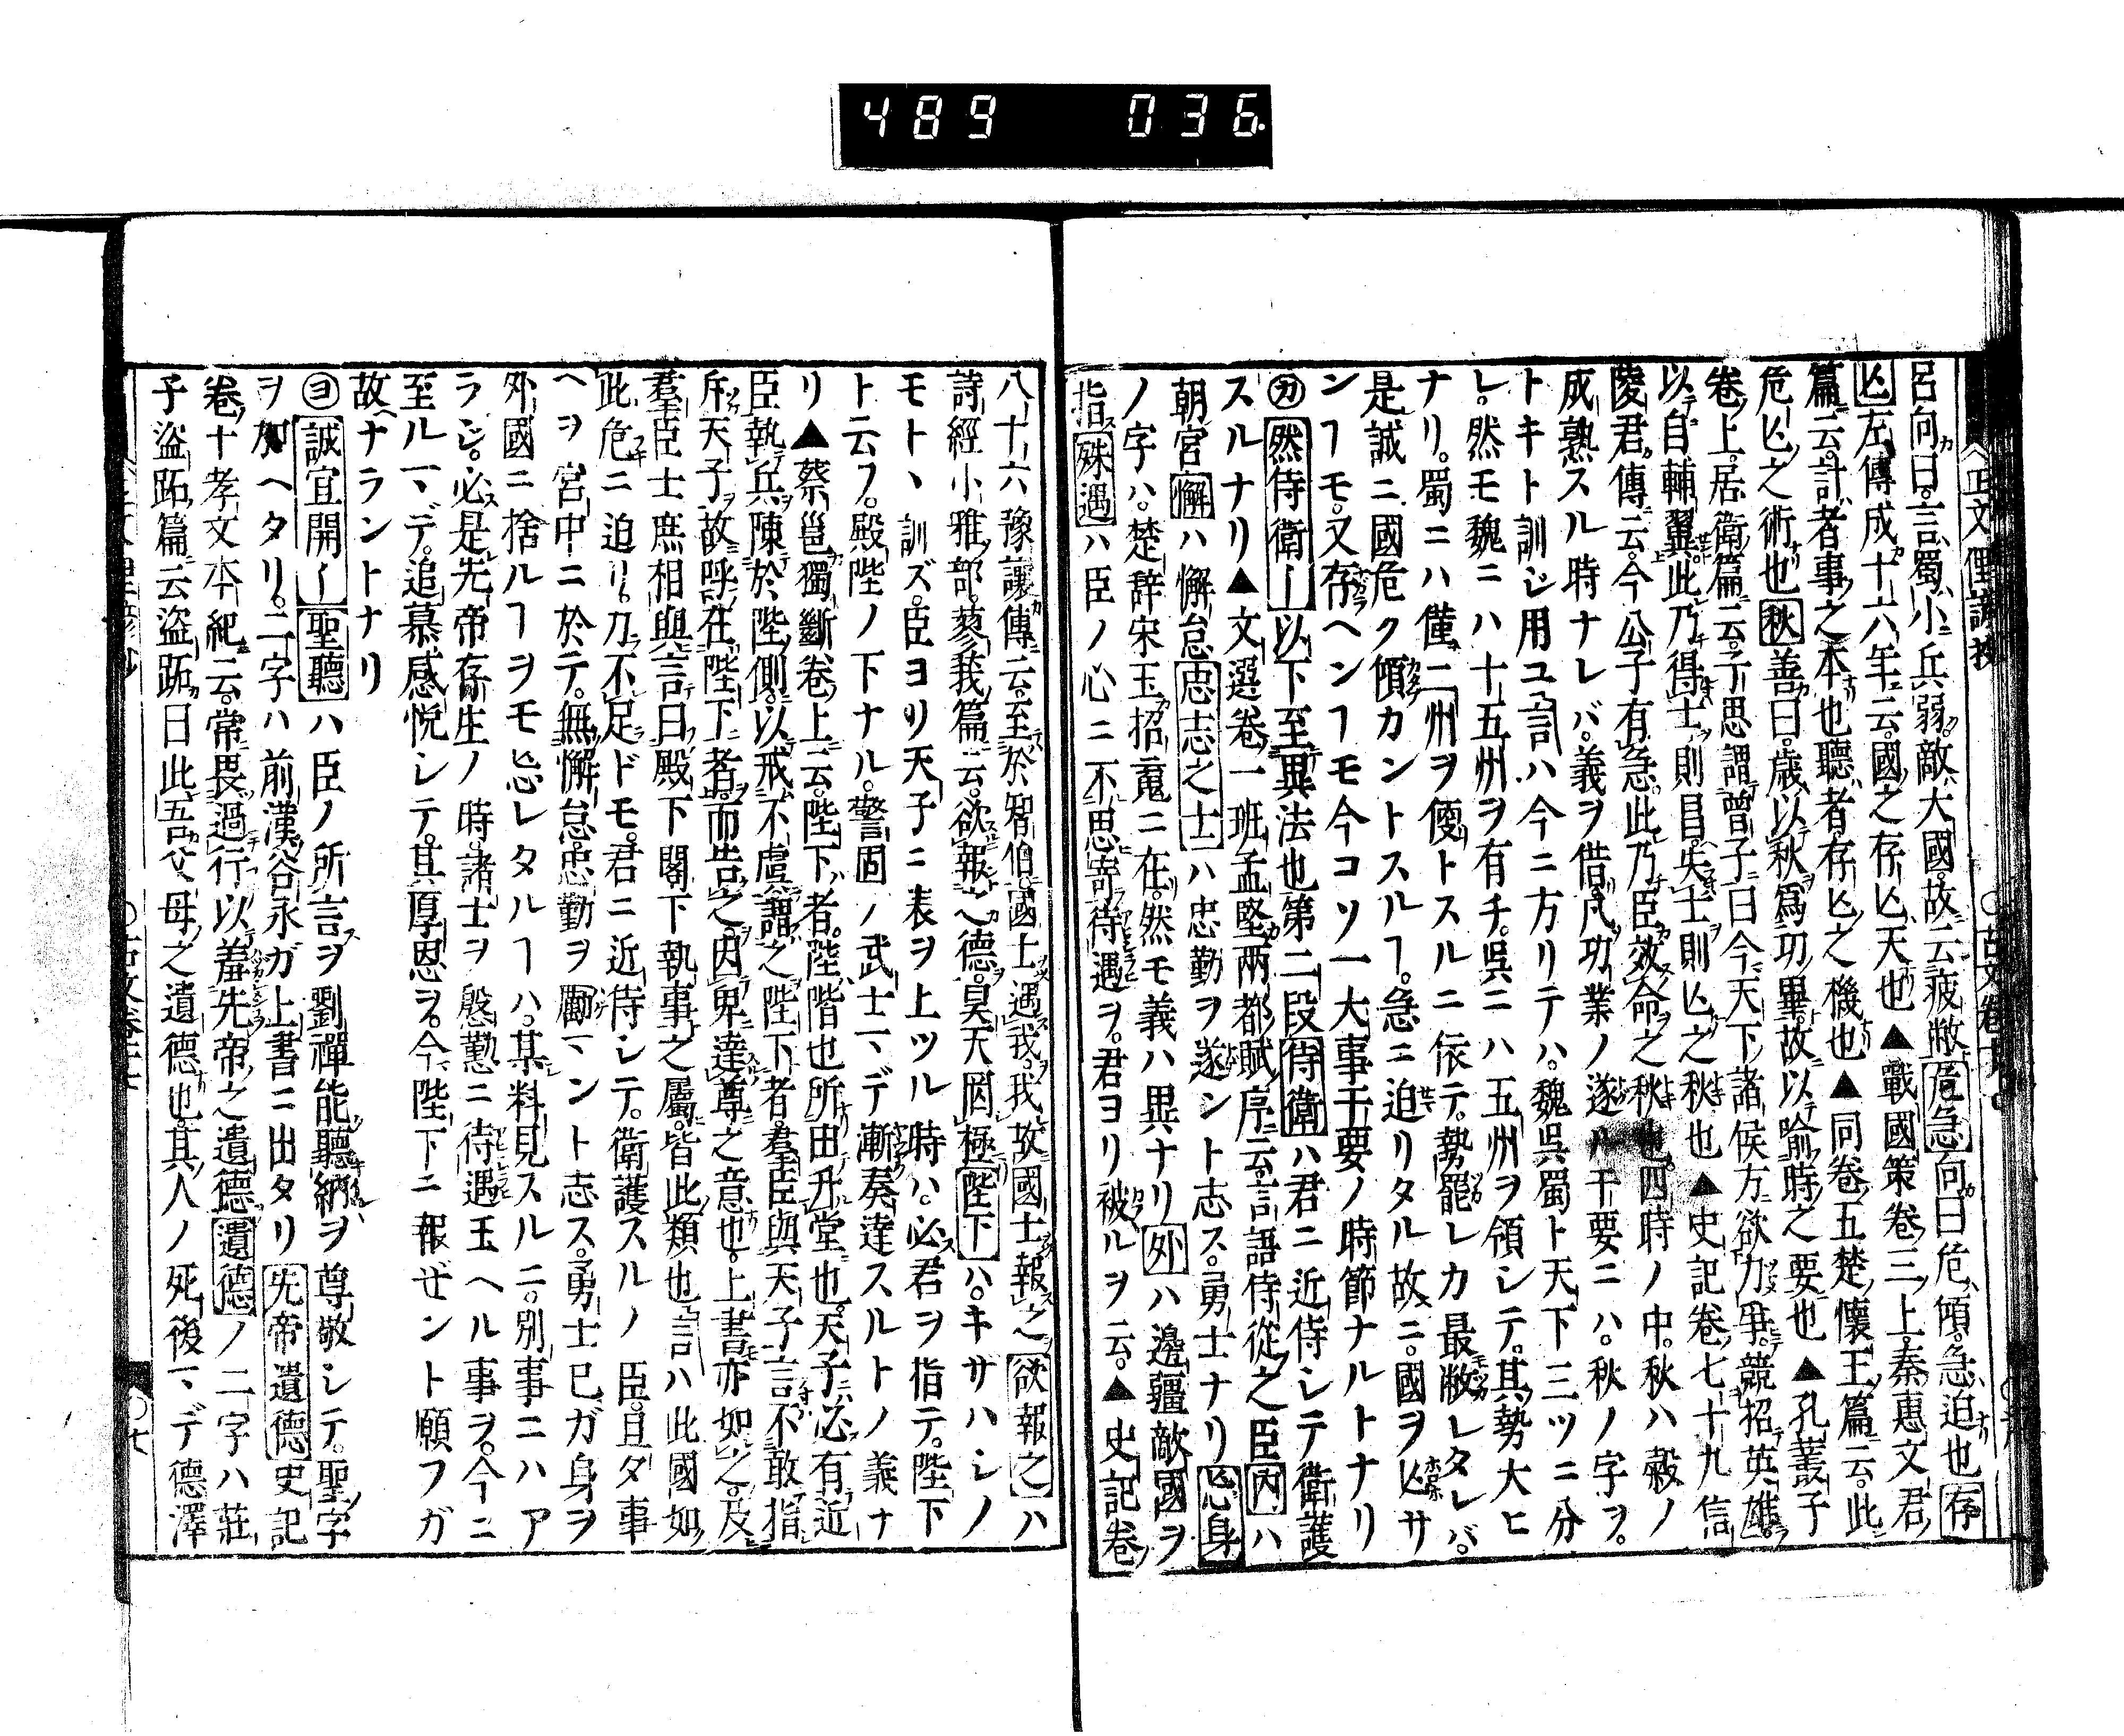 489 036
呂向曰。言蜀小兵弱。敵大國。故云疲敝危急向曰危傾。急迫也存
亡左傳成十六年云。國之存亡天也▲戰國策卷三上。秦惠文君
篇云。計者事之本也聽者存亡之機也▲同卷五楚懷王篇云。此
危亡之術也秋善曰。歲以秋爲功畢。故以喻時之要也▲孔叢子
卷上。居衛篇云。子思謂曾子曰今天下諸侯方欲力爭。競招英雄。
以自輔翼此乃得士則昌。失士則亡之秋也▲史記卷七十九信
陵君傳云。今公子有急。此乃臣效命之秋也。四時ノ中。秋ハ穀ノ
成熟スル時ナレバ。義ヲ借。凡功業ノ遂ル干要ニハ。秋ノ字ヲ。
トキト訓ジ用ユ言ハ今ニ方リテハ。魏呉蜀ト天下三ツニ分
レ。然モ魏ニハ十五州ヲ有チ。呉ニハ五州ヲ領シテ。其勢大ヒ
ナリ。蜀ニハ僅ニ一州ヲ便トスルニ依テ。勢罷レカ最敝レタレバ。
是誠ニ國危ク傾カントスルヿ。急ニ迫リタル故ニ。國ヲ亡サ
ンヿモ。又存ヘンヿモ今コソ一大事干要ノ時節ナルトナリ
㋕然侍衛〡以下至異法也第二段侍衛ハ君ニ近侍シテ衛護
スルナリ▲文選卷一班孟堅兩都賦序云。言語侍從之臣内ハ
朝宮懈ハ懈怠忠志之士ハ忠勤ヲ遂ント志ス。勇士ナリ忘身
ノ字ハ。楚辞宋玉招䰟ニ在。然モ義ハ異ナリ外ハ邊疆敵國ヲ
指殊遇ハ臣ノ心ニ不思寄待遇ヲ。君ヨリ被ルヲ云。▲史記卷
八十六豫讓傳云。至於智伯。國士遇我。我故國士報之欲報之ハ
詩經小雅部。蓼我篇云。欲報之德。昊天罔極陛下ハ。キサハシノ
モト丶訓ズ。臣ヨリ天子ニ表ヲ上ツル時ハ。必君ヲ指テ。陛下
ト云フ。殿陛ノ下ナル。警固ノ武士マデ漸奏達スルトノ義ナ
リ▲蔡邕獨斷卷上云。陛下者。陛階也所由升堂也。天子必有近
臣執兵陳於陛側。以戒不虞謂之陛下者。羣臣與天子言不敢指
斥天子。故呼在陛下者。而告之。因卑達尊之意也。上書亦如之。及
羣臣士庶相與言曰殿下閣下執事之屬。皆此類也言ハ此國如
此危ニ迫リ。力不足ドモ。君ニ近侍シテ。衛護スルノ臣。且夕事
ヘヲ宮中ニ於テ。無懈怠。忠勤ヲ勵マント志ス。勇士已ガ身ヲ
外國ニ捨ルヿヲモ忘レタルヿハ。某料見スルニ。別事ニハア
ラジ。必是先帝存生ノ時。諸士ヲ慇懃ニ待遇玉ヘル事ヲ。今ニ
至ルマデ。追慕感悦シテ。其厚恩ヲ。今陛下ニ報ぜント願フガ
故ナラントナリ
㋵誠宜開〡聖聽ハ臣ノ所言ヲ劉禪能聽納ヲ尊敬シテ。聖字
ヲ加ヘタリ。二字ハ前漢谷永ガ上書ニ出タリ先帝遺德史記
卷十孝文本紀云。常畏過行以羞先帝之遺德遺德ノ二字ハ莊
子盜跖篇云盜跖曰此吾父母之遺德也。其人ノ死後マデ德澤